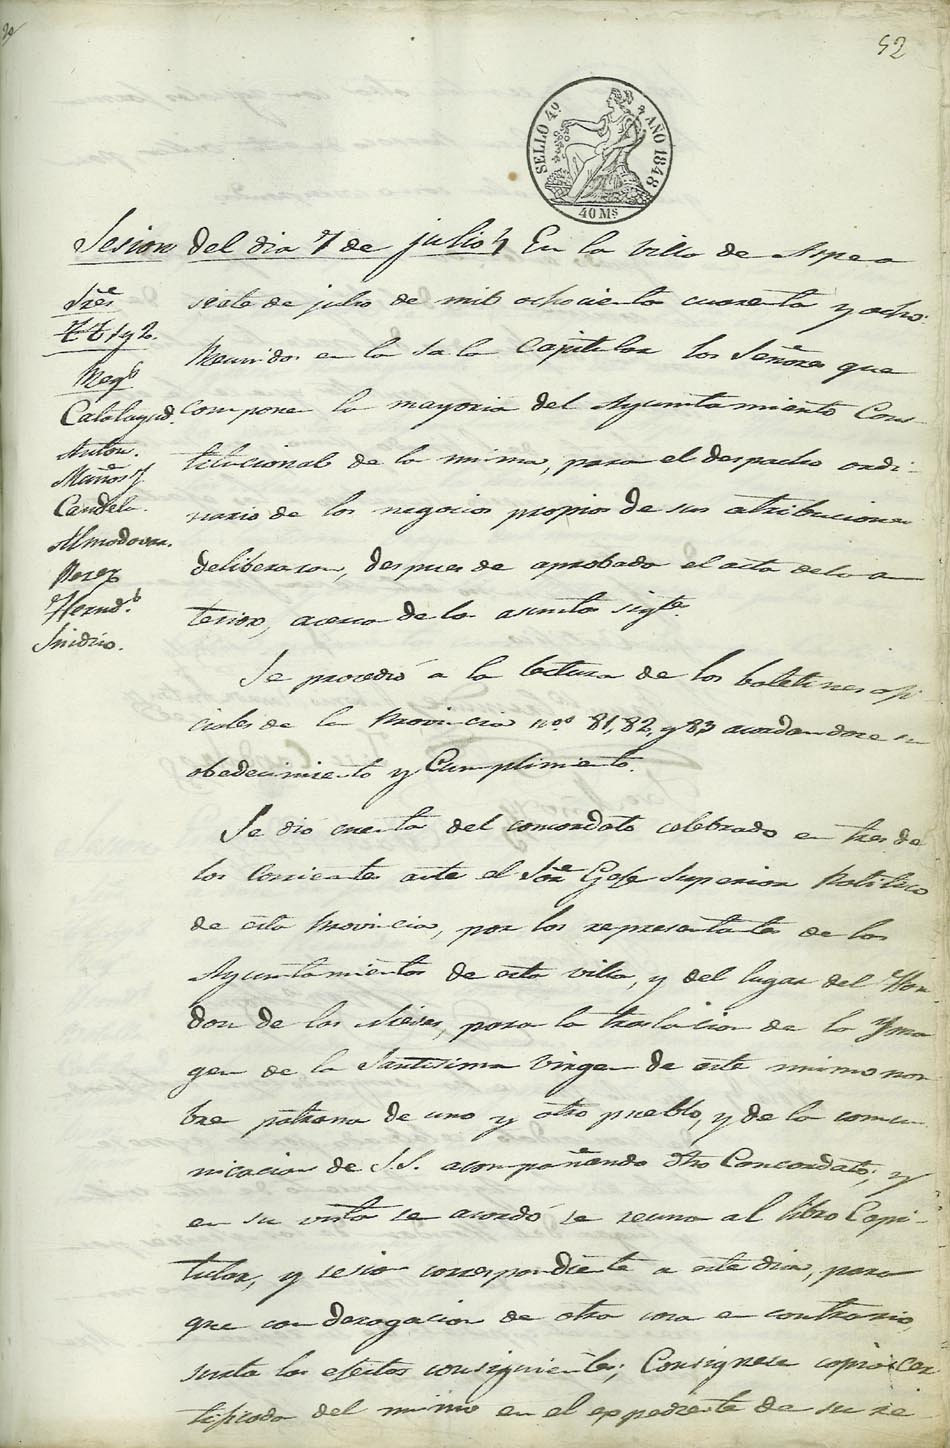 52
SELLO 4º AÑO 1848
40 Ms
Sesion del dia 7 de julio
En la villa de Aspe a
Sres
tt 1 y 2.
Calatayud.
Anton.
Muñoz
Candela.
Almodovar.
Perez
Hernd.
Sindico.
siete de julio de mil ochocientos cuarenta y ocho.
Reunidos en la Sala Capitular los Señores que
componen la mayoria del Ayuntamiento Cons-
titucional de la misma, para el despacho ordi-
nario de los negocios propios de sus atribuciones
deliberaron, despues de aprobada el acta de la an
terior, acerca de los asuntos sigtes.
Se procedió a la lectura de los boletines ofi
ciales de la Provincia nos. 81, 82, y 83 acordandose su
obedecimiento y Cumplimiento.
Se dió cuenta del concordato celebrado en tres de
los Corrientes ante el Sor Gefe Superior Politico
de esta Provincia, por los representantes de los
Ayuntamientos de esta villa, y del lugar del Hon
don de las Nieves, para la traslacion de la Yma
gen de la Santisima Virgen de este mismo nom
bre patrona de uno y otro pueblo, y de la comu-
nicacion de S.S. acompañando dho Concordato; y
en su vista se acordó se reuna al libro Capi-
tular, y sesion correspondiente a este dia, para
que con derogacion de otra cosa en contrario,
surta los efectos consiguientes; Consignese copia cer
tificada del mismo en el expediente de su re